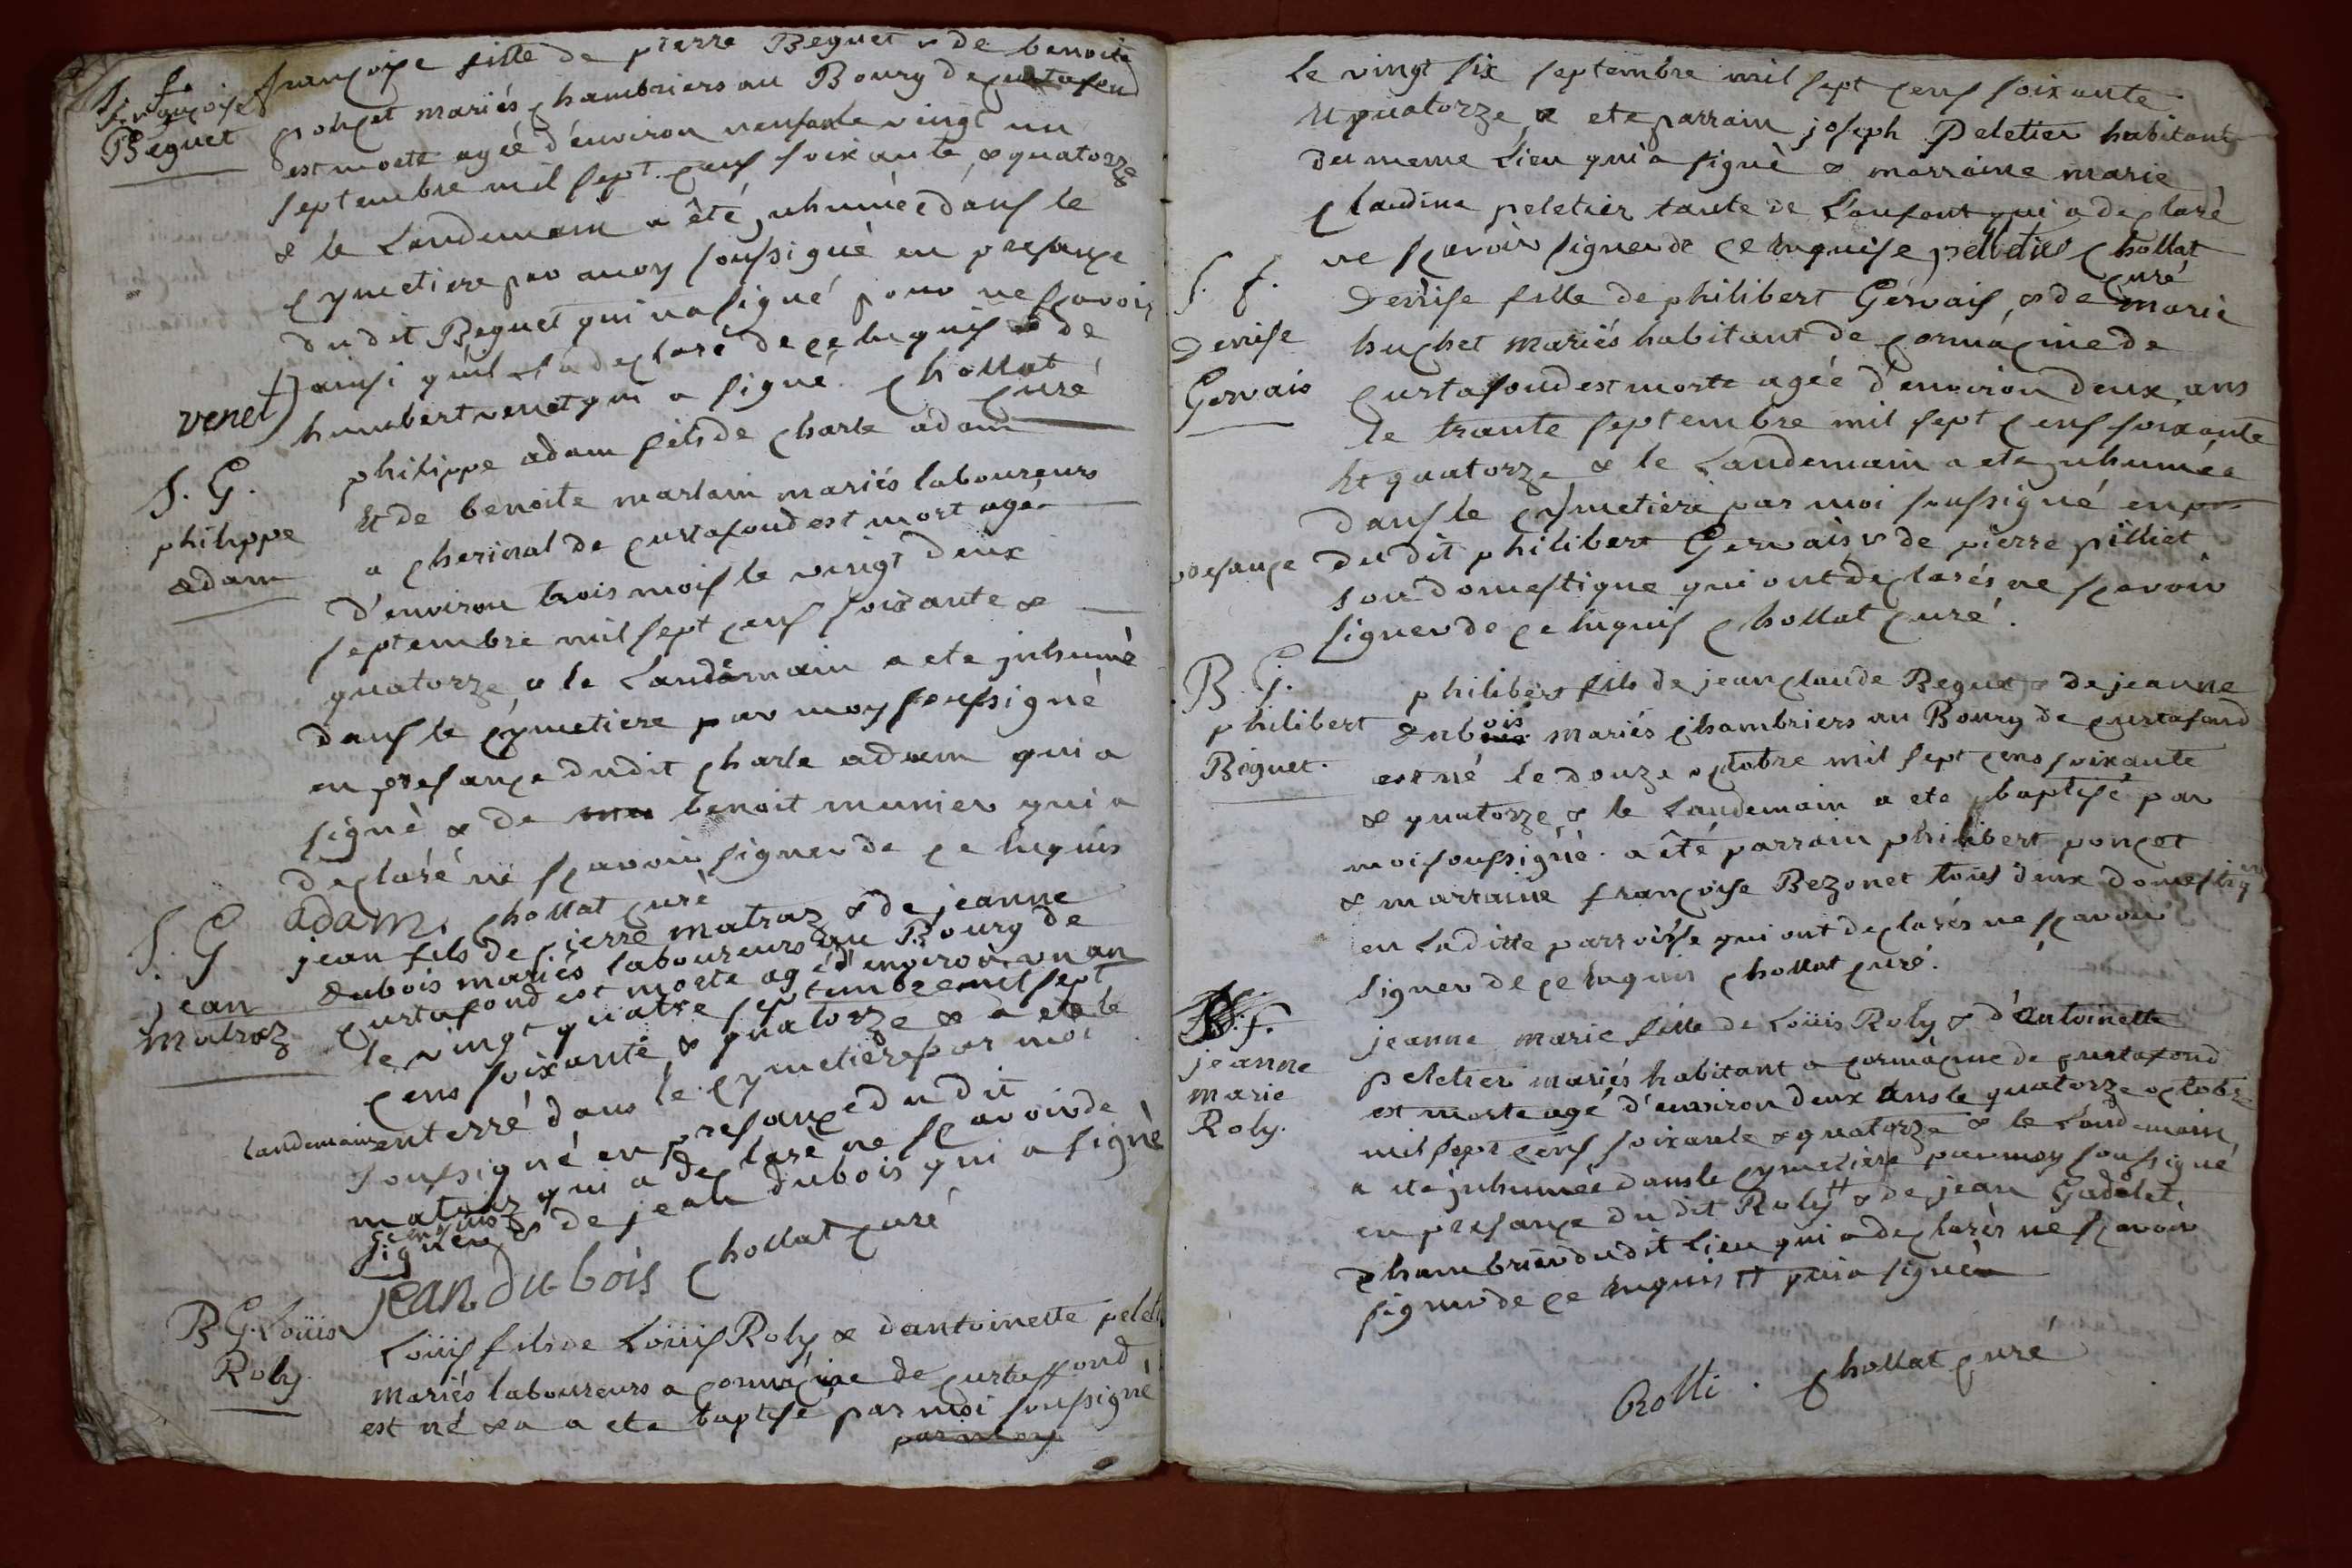 S. f.
françoise
Beguet
françoise fille de pierre Beguet & de benoite
ponçet mariés chambriers au Bourg de curtafond
est morte agée d'environ neuf ans le vingt un
septembre mil sept cens soixante & quatorze
& le Landemain a été inhumée dans le
cymetiere par moy soussigné en presançe
dudit Beguet qui n'a signé pour ne sçavoir
ainsi qu'il l'a declaré de ce enquis & de
venet
humbert venet qui a signé. Chollat
curé
S. G.
philippe
adam
philippe adam fils de charle adam
et de benoite marlain mariés laboureurs
a cherinal de curtafond est mort agé
d'environ trois mois le vingt deux
septembre mil sept cens soixante &
quatorze & le Landemain a ete inhumé
dans le cymetiere par moy soussigné
en presançe dudit charle adam qui a
signé & de benoit munier qui a
declaré ne sçavoir signer de ce enquis
adam. Chollat curé
S. G
jean
Matraz
jean fils de pierre matraz & de jeanne
dubois mariés laboureurs au Bourg de
curtafond est morte agé d'environ un an
le vingt quatre septembre mil sept
cens soixante & quatorze & a ete le
landemain enterré dans le cymetiere par moi
soussigné en presançe dudit
matraz qui a declaré ne sçavoir de
ce enquis
signer & de jean dubois qui a signé
jean dubois Chollat curé
B. G. Loüis
Roly
Loüis fils de Loüis Roly & dantoinette pelet
mariés laboureurs a cormaçine de curtaffond
est né & a a ete baptisé par moi soussigné
par moy
le vingt six septembre mil sept cens soixante
et quatorze & ete parrain joseph Peletier habitant
du meme Lieu qui a signé & marraine marie
claudine peletier tante de L'enfant qui a declaré
ne sçavoir signer de ce enquise pelletier Chollat
curé
S. f.
Denise
Gervais
Denise fille de philibert Gervais & de marie
huchet mariés habitant de cormaçine de
curtafond est morte agée d'environ deux ans
le trante septembre mil sept cens soixante
et quatorze & le Landemain a ete inhumée
dans le cymetiere par moi soussigné en
presançe dudit philibert Gervais & de pierre pilliet
son domestique qui ont declarés ne sçavoir
signer de ce enquis Chollat curé.
B. G.
philibert
Béguet.
philibert fils de jean claude Beguet & de jeanne
dubois mariés chambriers au Bourg de curtafond
est né le douze octobre mil sept cens soixante
& quatorze & le Landemain a ete baptisé par
moi soussigné. a été parrain philibert ponçet
& marraine françoise Bezonet tous deux domestiques
en Laditte parroisse qui ont declarés ne sçavoir
signer de ce enquis Chollat curé.
S. f.
jeanne
marie
Roly.
jeanne marie fille de Loüis Roly & d'antoinette
peletier mariés habitant a cormaçine de curtafond
est morte agé d'environ deux ans le quatorze octobre
mil sept cens soixante & quatorze & le Landemain
a ete inhumée dans le cymetiere par moy soussigné
en presançe du dit Roly †† & de jean Gadolet
chambrier dudit lieu qui a declarés ne sçavoir
signer de ce enquis †† qui a signé
Rolli. Chollat curé